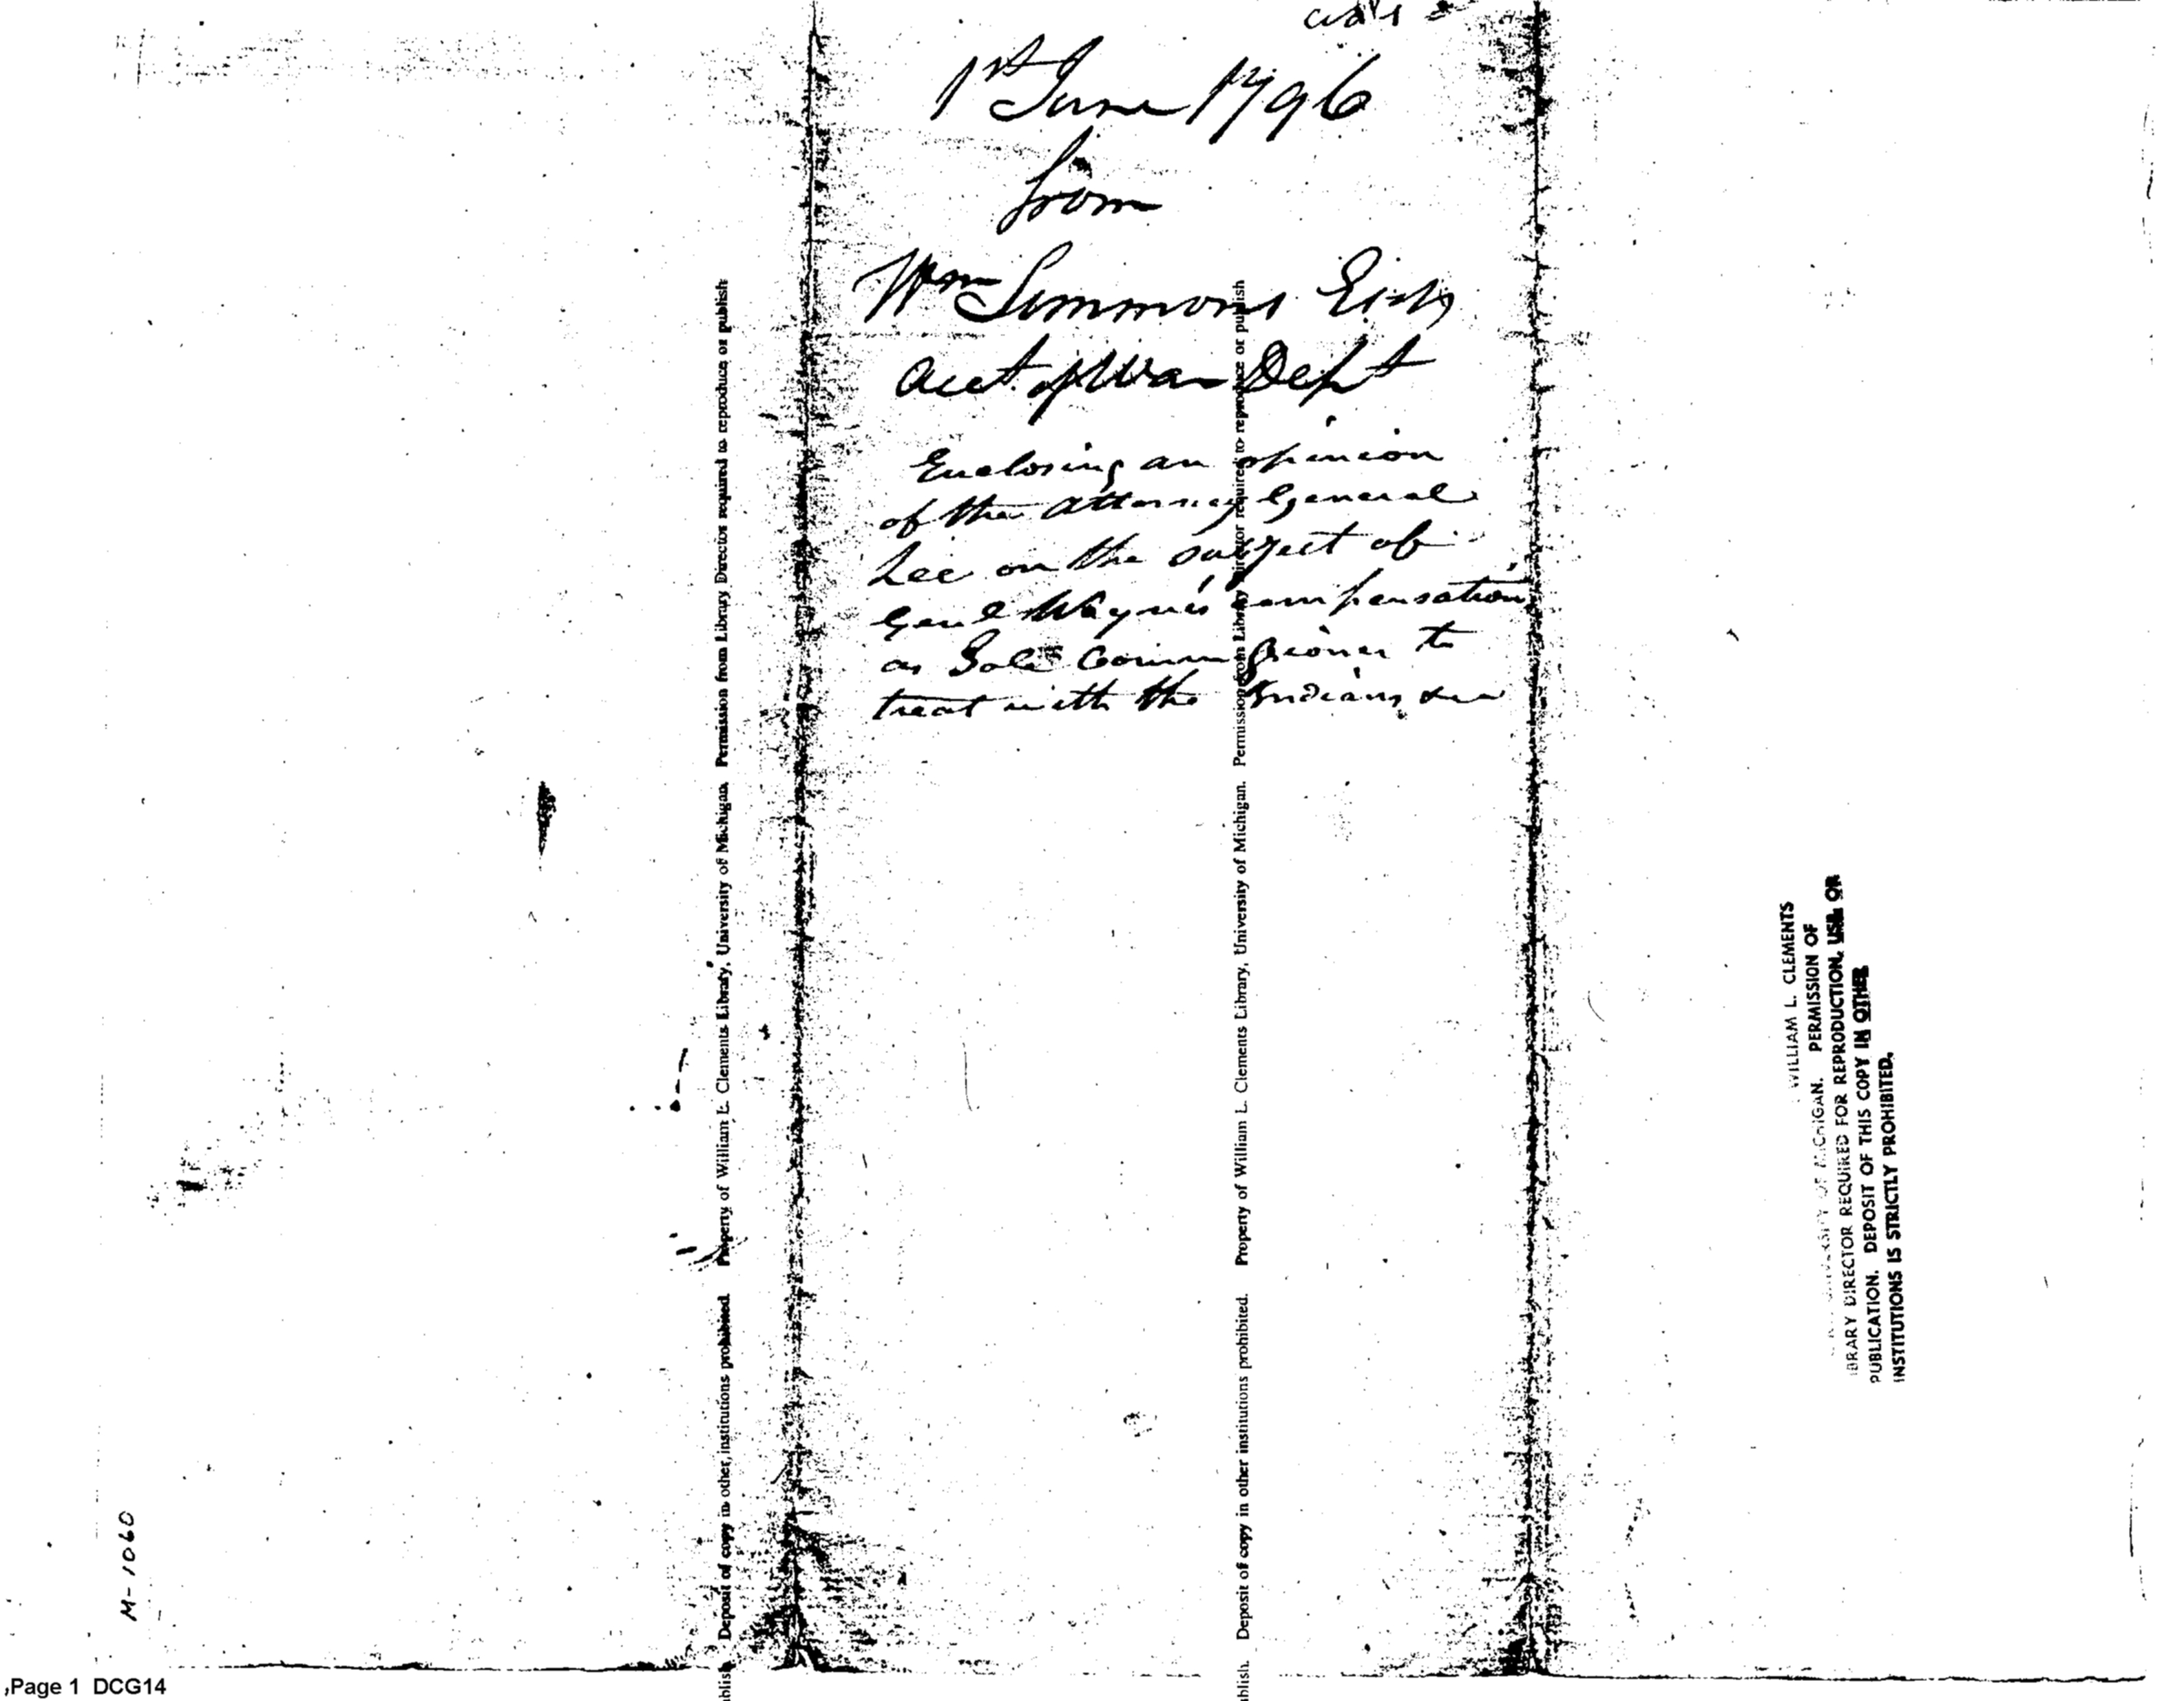 1st June 1796
from
Wm Simmons Esqr
Acct of War Dept
Enclosing an opinion
of the Attorney General
Lee on the subject of
Genl Wayne's compensation
as Sole Commissioner to
treat with the Indians
Property of William L. Clements Library, University of Michigan. Permission from Library Director required to reproduce or publish
Deposit of copy in other institutions prohibited.
Property of William L. Clements Library, University of Michigan. Permission from Library Director required to reproduce or publish
Deposit of copy in other institutions prohibited.
blish.
blish.
WILLIAM L. CLEMENTS
UNIVERSITY OF MICHIGAN. PERMISSION OF
BRARY DIRECTOR REQUIRED FOR REPRODUCTION, USE OR
PUBLICATION. DEPOSIT OF THIS COPY IN OTHER
INSTITUTIONS IS STRICTLY PROHIBITED.
M-1060
Page 1 DCG14